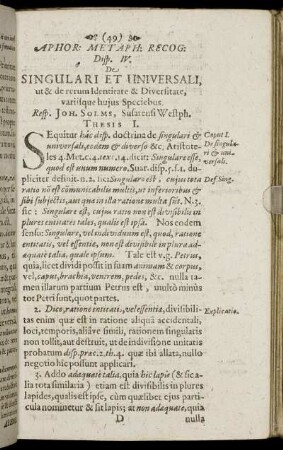 (49)
APHOR: METAPH: RECOG:
Disp. IV.
De
SINGULARI ET UNIVERSALI,
ut & de rerum Identitate & Diversitate,
variisque hujus Speciebus.
Resp. JOH. SOLMS, Susatensi Westph.
THESIS I.
SEquitur hâc disp. doctrina de singulari &
universali, eodem & diverso &c. Aristote-
les 4. Met. c. 4. tex: 14. dicit Singulare esse,
quod est unum numero, Suar. disp. 5. s. 1. du-
pliciter definit. n. 2. sic: Singulare est, cujus tota
ratio nō est communicabilis multis, ut inferioribus &
sibi subjectis, aut qua in ista ratione multa sint. N. 3.
sic: Singulare est, cujus ratio non est divisibilis in
plures entitates tales, qualis est ipsa. Nos eodem
sensu: Singulare, vel individuum est, quod, ratione
entitatis, vel essentiæ, non est divisibile in plura ad-
æquatè talia, quale ipsum. Tale est v.g. Petrus,
quia, licet dividi possit in suam animam & corpus,
vel, caput, brachia, ventrem, pedes, &c. nulla ta-
men illarum partium Petrus est, multò minùs
tot Petri sunt, quot partes.
2. Dico, ratione entitatis, vel essentiæ, divisibilitas
enim quæ est in ratione aliquâ accidentali,
loci, temporis, aliâve simili, rationem singularis
non tollit, aut destruit, ut de indivisione unitatis
probatum disp. præc. 2. th. 4. quæ ibi allata, nullo
negotio hîc possunt applicari.
3. Addo adæquatè talia, quia hic lapis (& sic a-
lia tota similaria) etiam est divisibilis in plures
lapides, qualis est ipse, cùm quælibet ejus parti-
cula nominetur & sit lapis; at non adæquatè, quia
D nulla
Caput I.
De singula-
ri & uni-
versali.
Def Sing.
Explicatio.